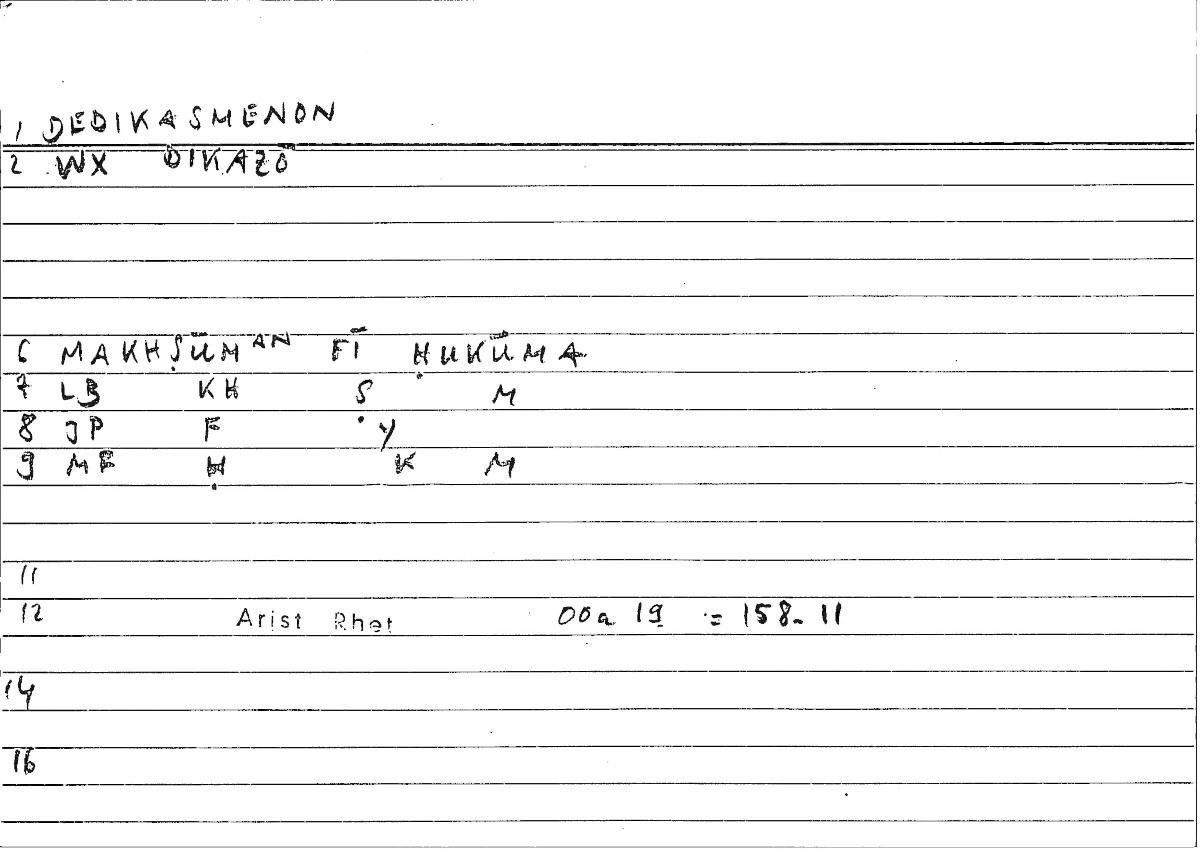 1 DEDIKASMENON
2 WX DIKAZŌ
6 MAKHṢŪMAN FĪ ḤUKŪMA
7 LB KH Ṣ M
8 JP F Y
9 MF Ḥ K M
11
12 Arist Rhet 00a 19 = 158.11
14
16